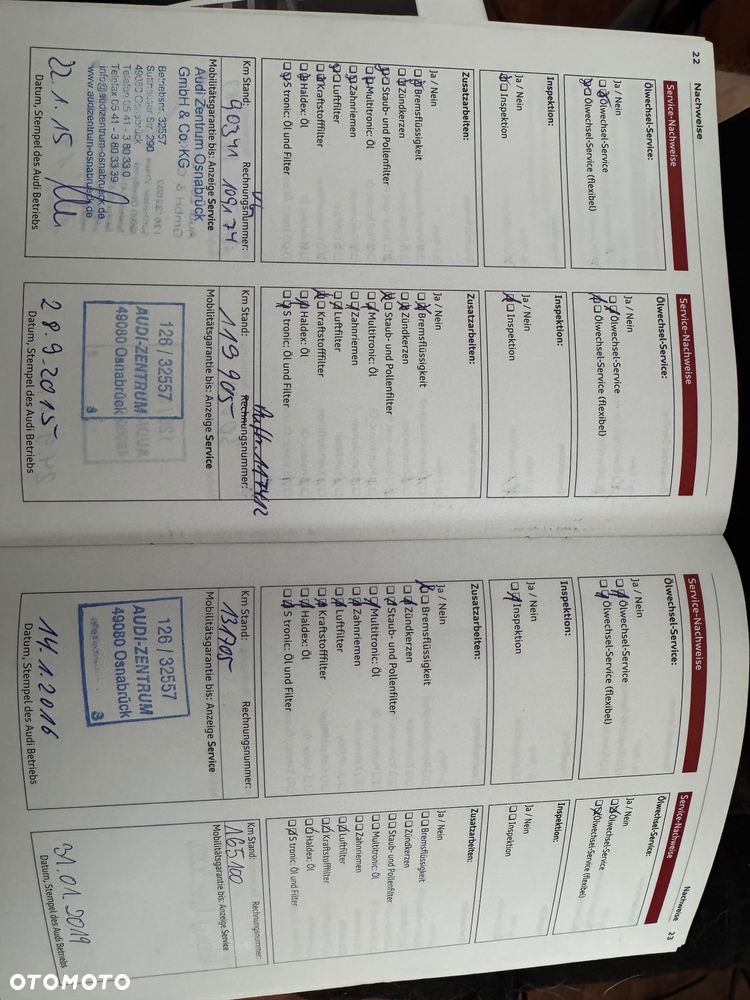 22 Nachweise
Service-Nachweise
Ölwechsel-Service:
Ja / Nein
Ölwechsel-Service
Ölwechsel-Service (flexibel)
Inspektion:
Ja / Nein
Inspektion
Zusatzarbeiten:
Ja / Nein
Bremsflüssigkeit
Zündkerzen
Staub- und Pollenfilter
Multitronic: Öl
Zahnriemen
Luftfilter
Kraftstofffilter
Haldex: Öl
S tronic: Öl und Filter
Km Stand: Rechnungsnummer:
90341 109174
Mobilitätsgarantie bis: Anzeige Service
Audi Zentrum Osnabrück
GmbH & Co. KG
Betriebsnr. 32557
49080 Osnabrück
Telefon 05 41 - 3 80 33 0
Telefax 05 41 - 3 80 33 39
info@audizentrum-osnabrueck.de
www.audizentrum-osnabrueck.de
22.1.15
Datum, Stempel des Audi Betriebs
Service-Nachweise
Ölwechsel-Service:
Ja / Nein
Ölwechsel-Service
Ölwechsel-Service (flexibel)
Inspektion:
Ja / Nein
Inspektion
Zusatzarbeiten:
Ja / Nein
Bremsflüssigkeit
Zündkerzen
Staub- und Pollenfilter
Multitronic: Öl
Zahnriemen
Luftfilter
Kraftstofffilter
Haldex: Öl
S tronic: Öl und Filter
Km Stand: Rechnungsnummer:
119905
Mobilitätsgarantie bis: Anzeige Service
126 / 32557
AUDI-ZENTRUM
49080 Osnabrück
28.9.2015
Datum, Stempel des Audi Betriebs
Service-Nachweise
Ölwechsel-Service:
Ja / Nein
Ölwechsel-Service
Ölwechsel-Service (flexibel)
Inspektion:
Ja / Nein
Inspektion
Zusatzarbeiten:
Ja / Nein
Bremsflüssigkeit
Zündkerzen
Staub- und Pollenfilter
Multitronic: Öl
Zahnriemen
Luftfilter
Kraftstofffilter
Haldex: Öl
S tronic: Öl und Filter
Km Stand: Rechnungsnummer:
Mobilitätsgarantie bis: Anzeige Service
126 / 32557
AUDI-ZENTRUM
49080 Osnabrück
14.1.2016
Datum, Stempel des Audi Betriebs
Nachweise 23
Service-Nachweise
Ölwechsel-Service:
Ja / Nein
Ölwechsel-Service
Ölwechsel-Service (flexibel)
Inspektion:
Ja / Nein
Inspektion
Zusatzarbeiten:
Ja / Nein
Bremsflüssigkeit
Zündkerzen
Staub- und Pollenfilter
Multitronic: Öl
Zahnriemen
Luftfilter
Kraftstofffilter
Haldex: Öl
S tronic: Öl und Filter
Km Stand: Rechnungsnummer:
165100
Mobilitätsgarantie bis: Anzeige Service
31.01.2019
Datum, Stempel des Audi Betriebs
OTOMOTO